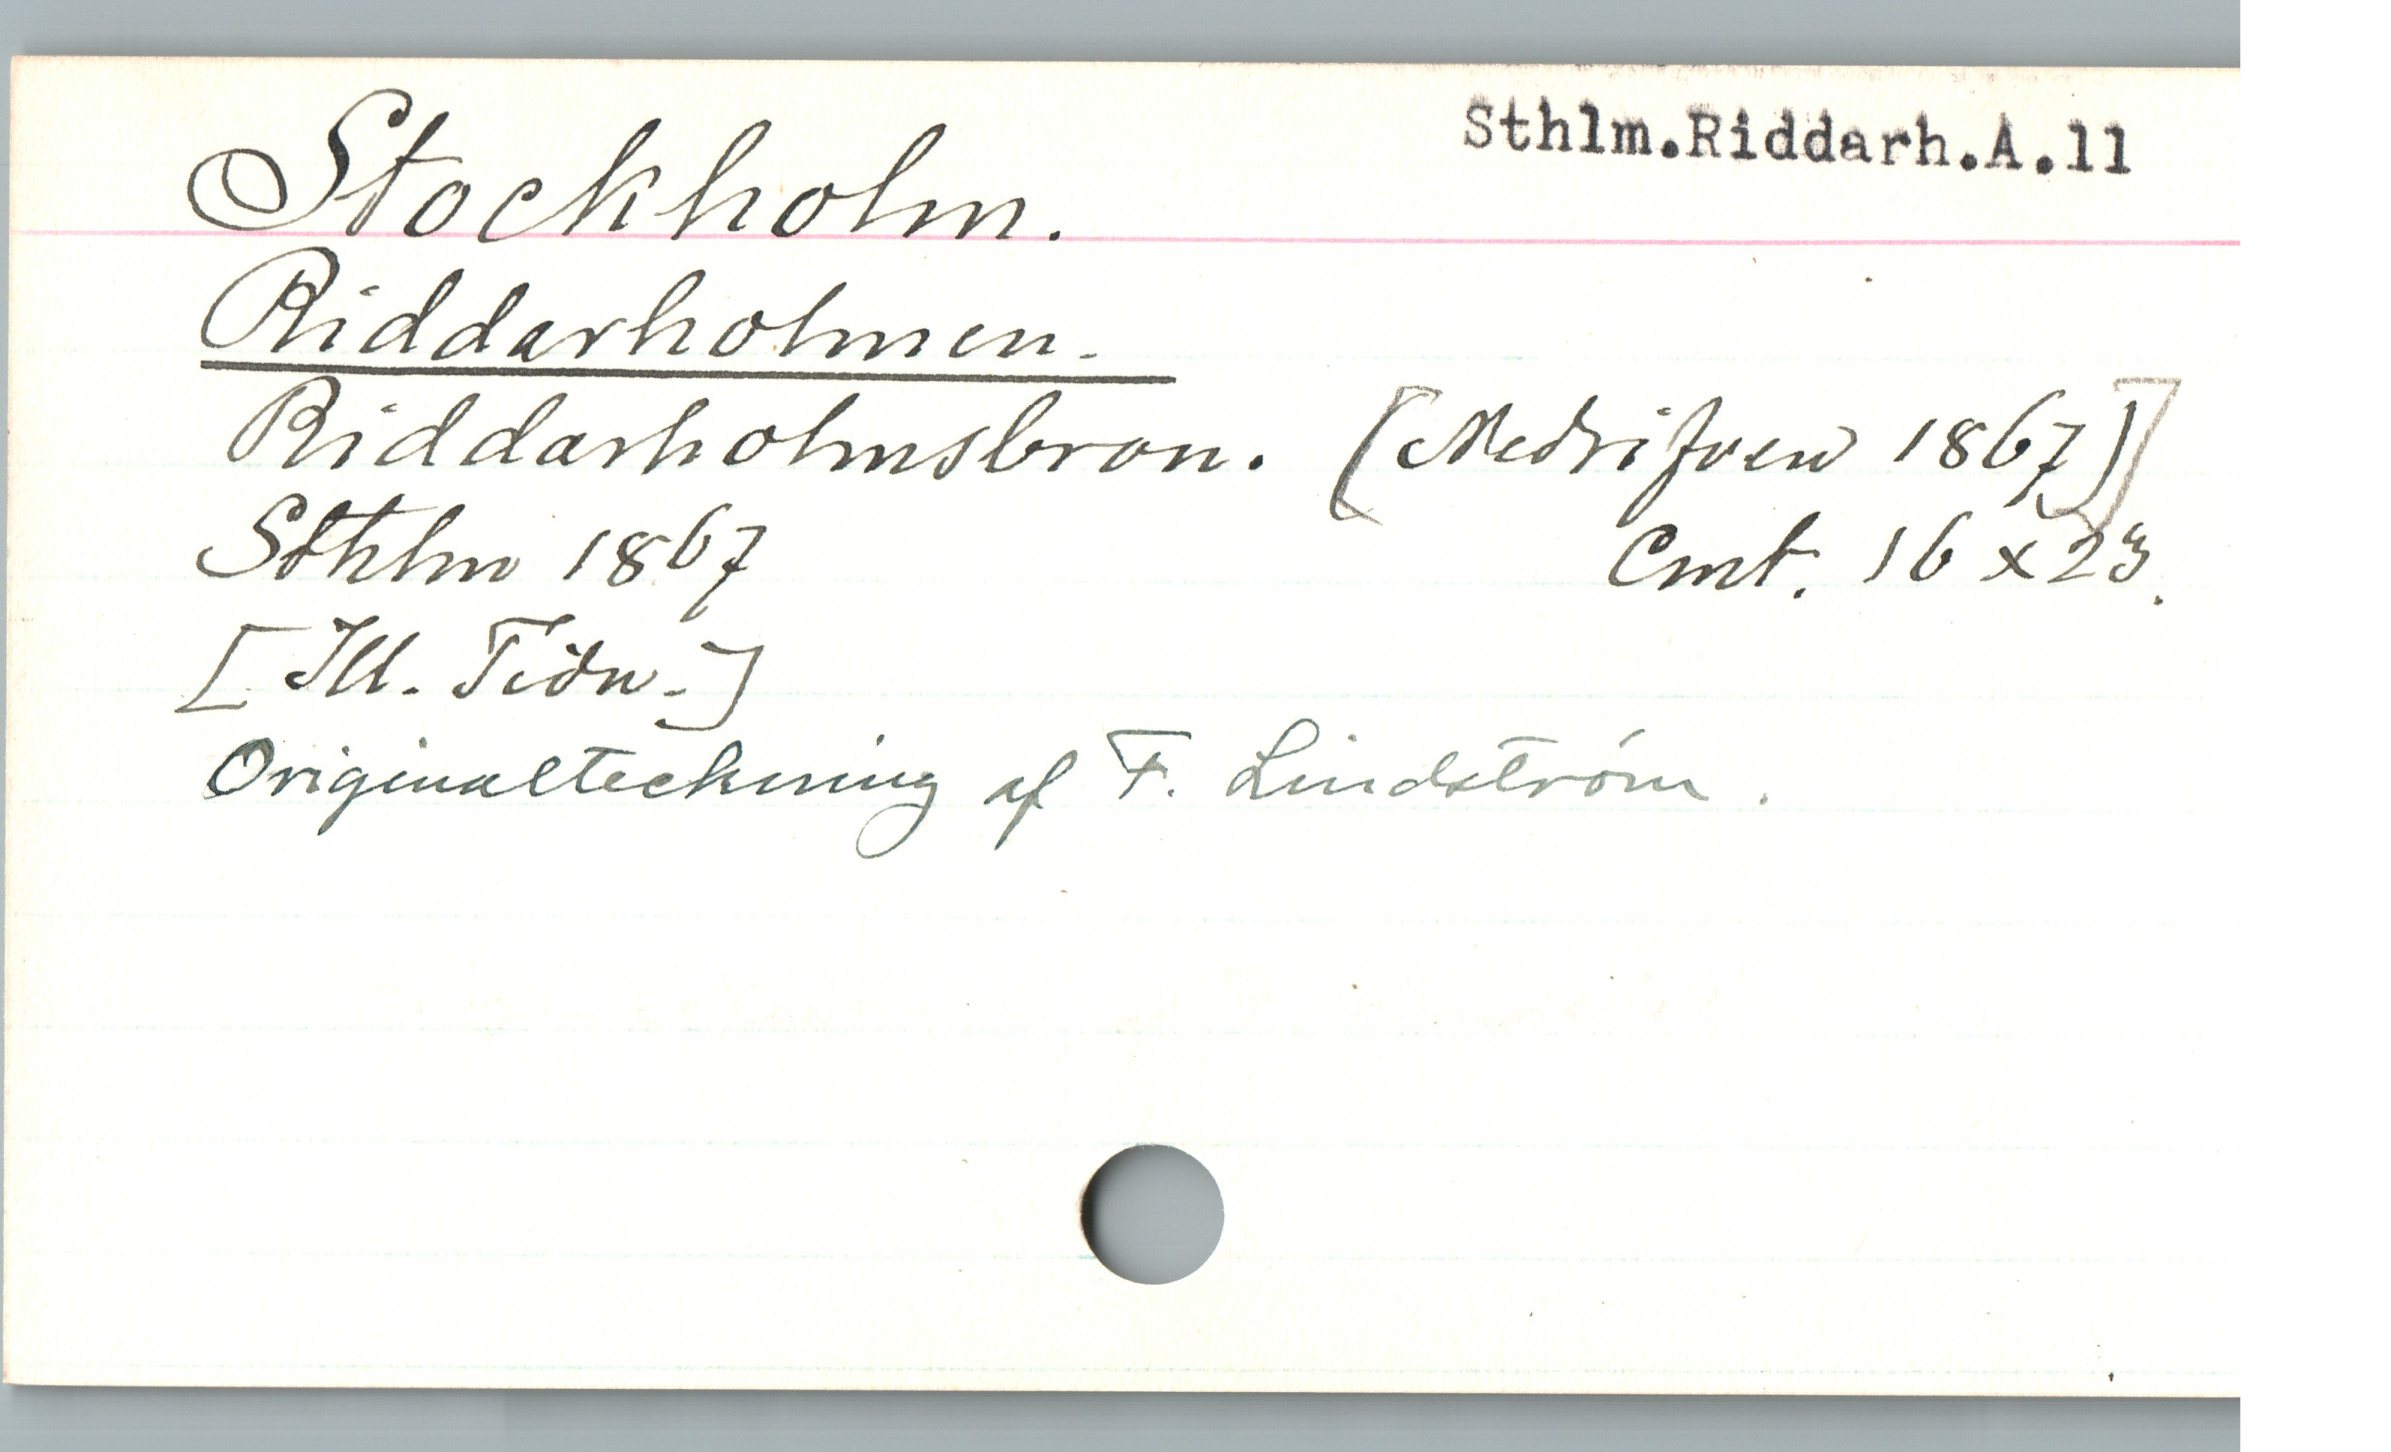 Sthlm.Riddarh.A.11
Stockholm.
Riddarholmen.
Riddarholmsbron. [Nedrifven 1867)]
Sthlm 1867 Cmt. 16 x 23.
[Ill. Tidn.]
Originalteckning af F. Lindström.